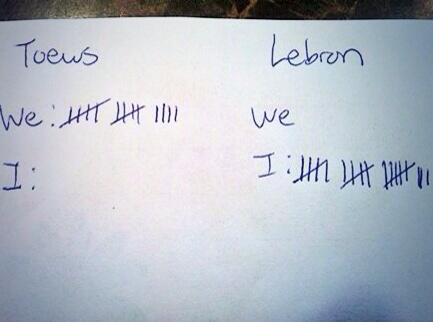 Toews Lebron
We: 𝍸 𝍸 |||| We
I: I: 𝍸 𝍸 𝍸 ||